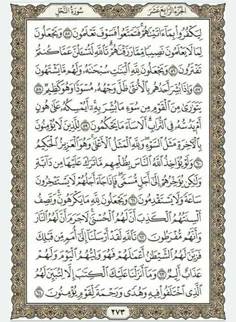 الجزء الرابع عشر
سورة النحل
لِيَكْفُرُوا۟ بِمَآ ءَاتَيْنَٰهُمْ فَتَمَتَّعُوا۟ فَسَوْفَ تَعْلَمُونَ ٥٥ وَيَجْعَلُونَ
لِمَا لَا يَعْلَمُونَ نَصِيبًا مِّمَّا رَزَقْنَٰهُمْ تَٱللَّهِ لَتُسْـَٔلُنَّ عَمَّا كُنتُمْ
تَفْتَرُونَ ٥٦ وَيَجْعَلُونَ لِلَّهِ ٱلْبَنَٰتِ سُبْحَٰنَهُۥ وَلَهُم مَّا يَشْتَهُونَ
٥٧ وَإِذَا بُشِّرَ أَحَدُهُم بِٱلْأُنثَىٰ ظَلَّ وَجْهُهُۥ مُسْوَدًّا وَهُوَ كَظِيمٌ ٥٨
يَتَوَٰرَىٰ مِنَ ٱلْقَوْمِ مِن سُوٓءِ مَا بُشِّرَ بِهِۦٓ أَيُمْسِكُهُۥ عَلَىٰ هُونٍ
أَمْ يَدُسُّهُۥ فِى ٱلتُّرَابِ أَلَا سَآءَ مَا يَحْكُمُونَ ٥٩ لِلَّذِينَ لَا يُؤْمِنُونَ
بِٱلْءَاخِرَةِ مَثَلُ ٱلسَّوْءِ وَلِلَّهِ ٱلْمَثَلُ ٱلْأَعْلَىٰ وَهُوَ ٱلْعَزِيزُ ٱلْحَكِيمُ
٦٠ وَلَوْ يُؤَاخِذُ ٱللَّهُ ٱلنَّاسَ بِظُلْمِهِم مَّا تَرَكَ عَلَيْهَا مِن دَآبَّةٍ
وَلَٰكِن يُؤَخِّرُهُمْ إِلَىٰٓ أَجَلٍ مُّسَمًّى فَإِذَا جَآءَ أَجَلُهُمْ لَا يَسْتَـْٔخِرُونَ
سَاعَةً وَلَا يَسْتَقْدِمُونَ ٦١ وَيَجْعَلُونَ لِلَّهِ مَا يَكْرَهُونَ وَتَصِفُ
أَلْسِنَتُهُمُ ٱلْكَذِبَ أَنَّ لَهُمُ ٱلْحُسْنَىٰ لَا جَرَمَ أَنَّ لَهُمُ ٱلنَّارَ
وَأَنَّهُم مُّفْرَطُونَ ٦٢ تَٱللَّهِ لَقَدْ أَرْسَلْنَآ إِلَىٰٓ أُمَمٍ مِّن قَبْلِكَ
فَزَيَّنَ لَهُمُ ٱلشَّيْطَٰنُ أَعْمَٰلَهُمْ فَهُوَ وَلِيُّهُمُ ٱلْيَوْمَ وَلَهُمْ
عَذَابٌ أَلِيمٌ ٦٣ وَمَآ أَنزَلْنَا عَلَيْكَ ٱلْكِتَٰبَ إِلَّا لِتُبَيِّنَ لَهُمُ
ٱلَّذِى ٱخْتَلَفُوا۟ فِيهِ وَهُدًى وَرَحْمَةً لِّقَوْمٍ يُؤْمِنُونَ ٦٤
٢٧٣